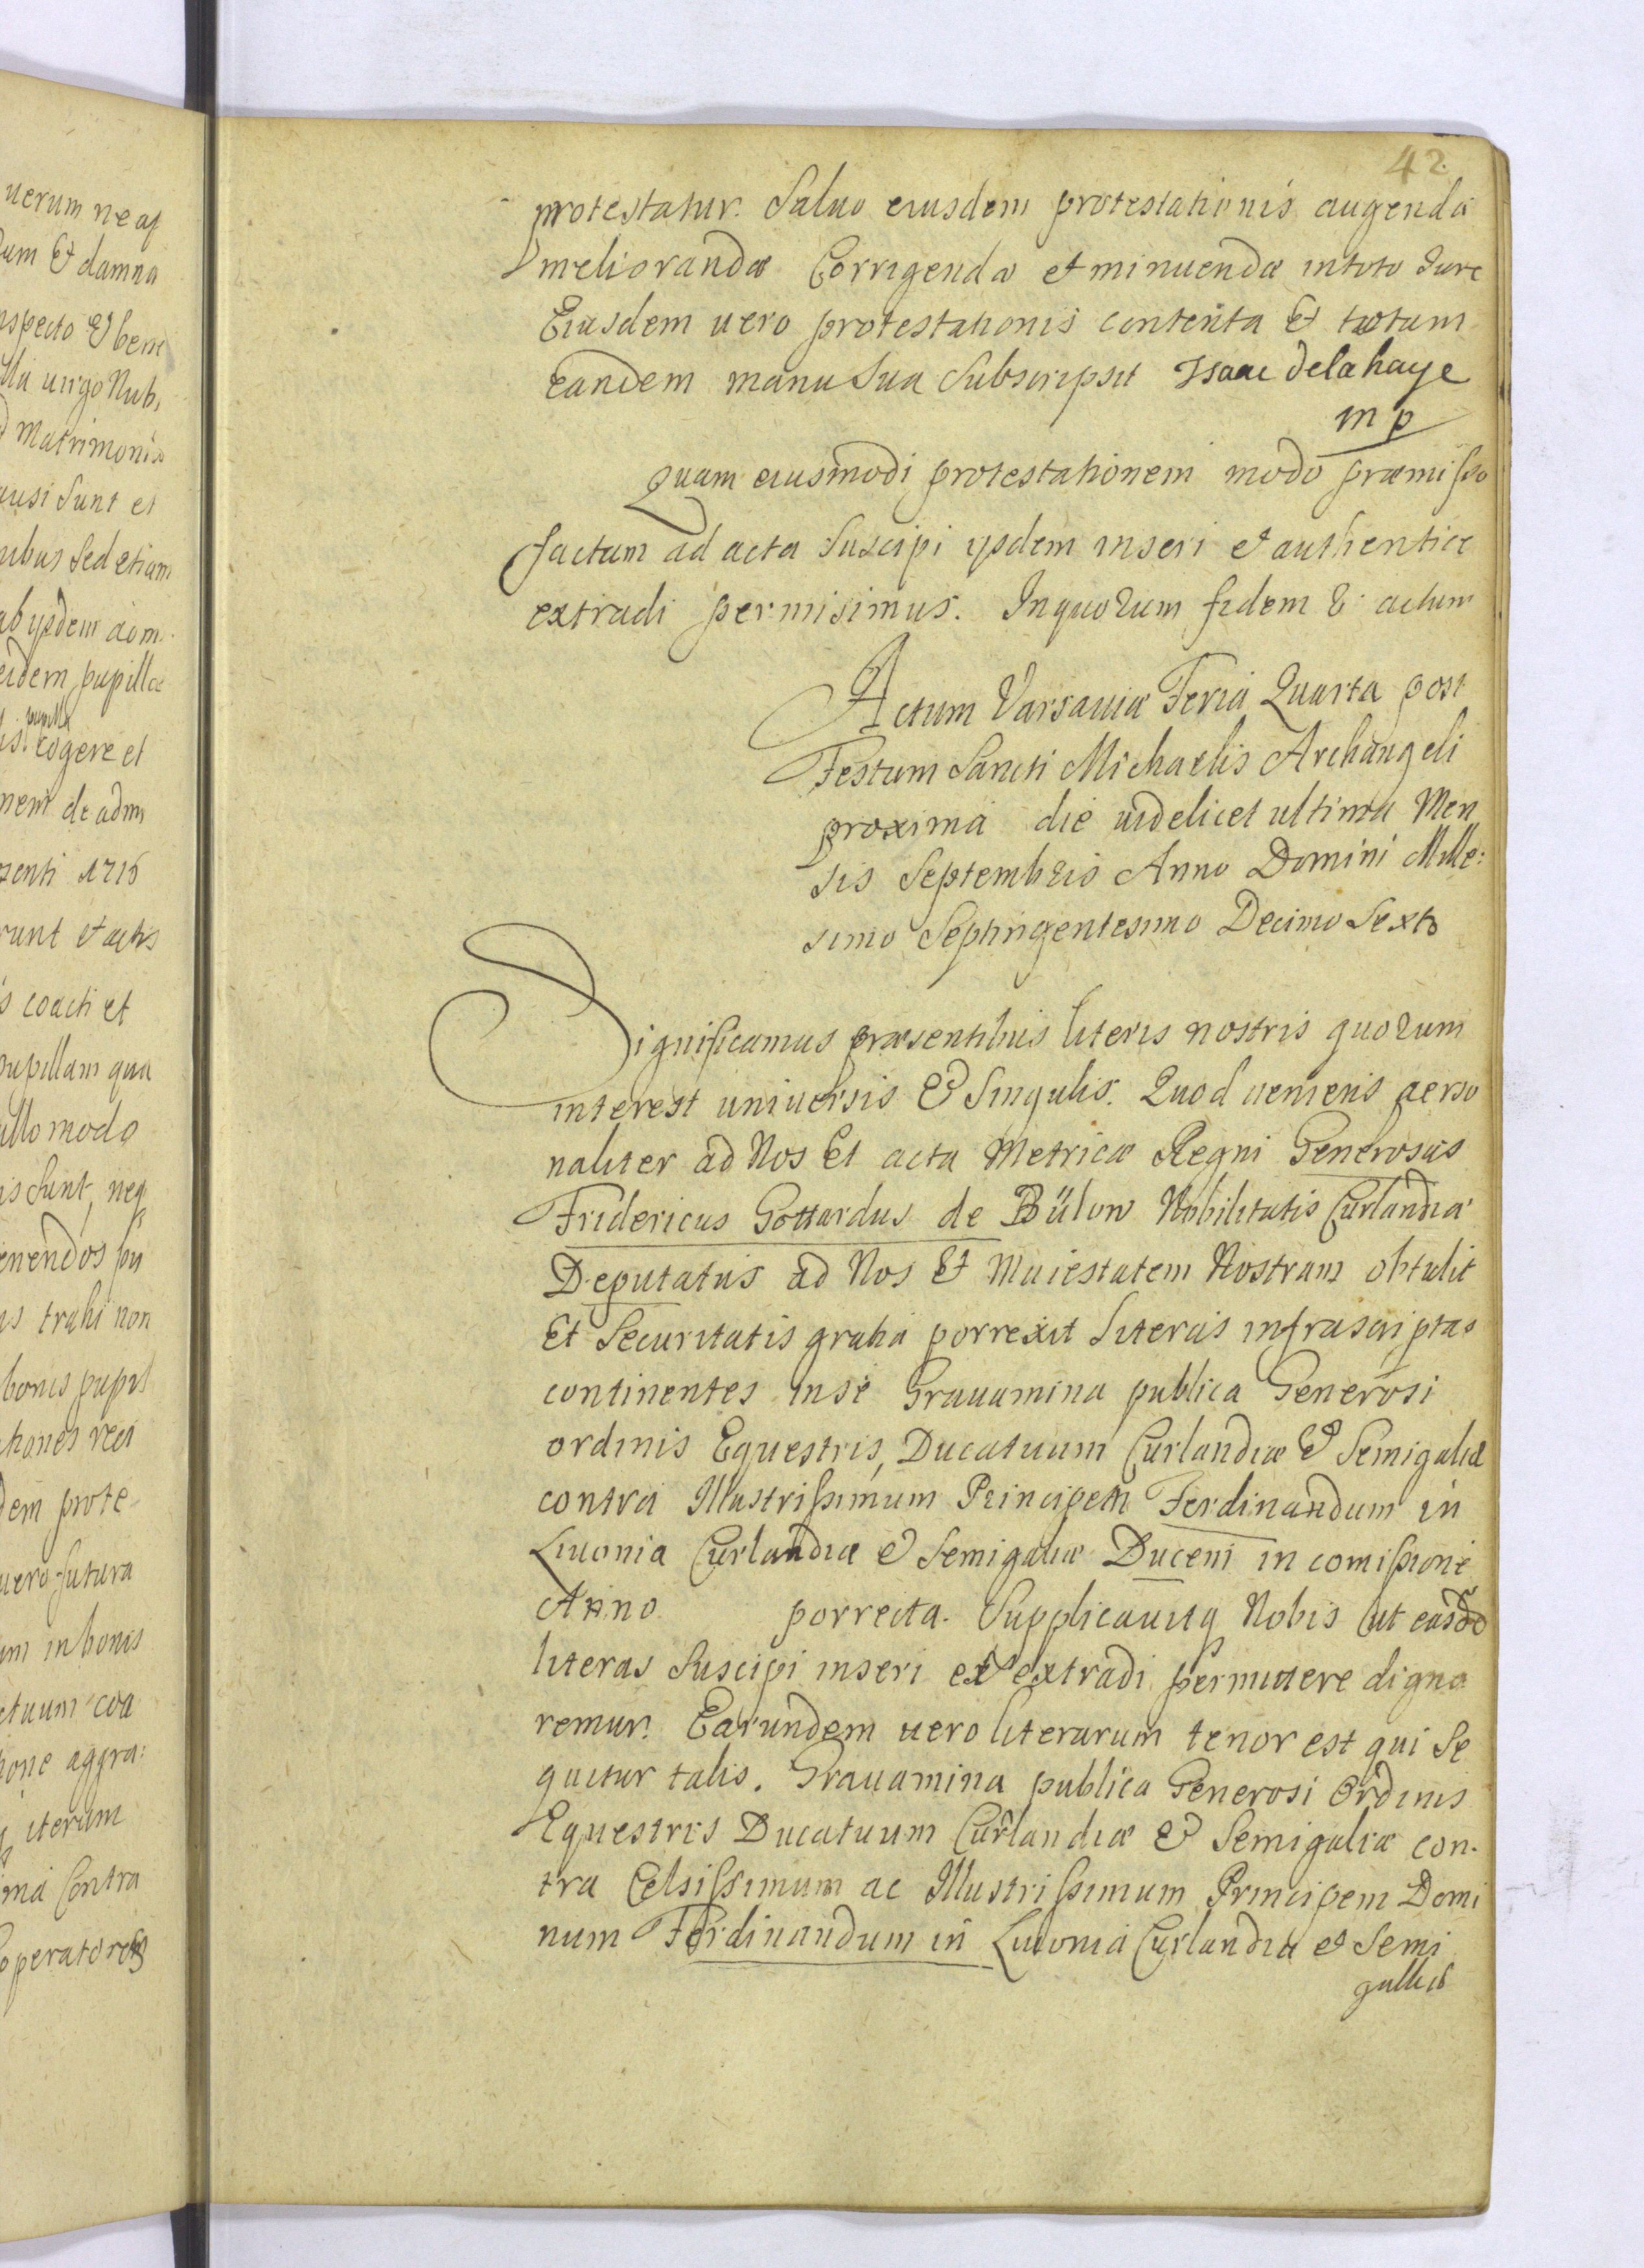 uerum ne
um & damna
specto & bene
uirgo Nub,
Matrimonio
ausi Sunt et
Sed etiam
ab ysdem
eidem pupillæ
cogere et
de adm
1716
runt et actis
coacti et
pupillam qua
ullo modo
Sunt, neq
trahi non
bonis pupil
dem prote
uero futura
um in bonis
ctuum coa
ione aggra:
iterum
Contra
42.
protestatur. Saluo eiusdem protestationis augendæ
meliorandæ Corrigendæ et minuendæ in toto Jure
Eiusdem uero protestationis contenta & totum
eandem manu Sua Subscripsit Isaac delahaye
mp
Quam eiusmodi protestationem modo præmisso
factam ad acta Suscipi ysdem inseri et authentice
extradi permisimus. In quorum fidem & actum
Actum Varsauiæ Feria Quarta post
Festum Sancti Michaelis Archangeli
proxima die uidelicet ultima Men
sis Septembris Anno Domini Mille:
simo Septingentesimo Decimo Sexto
Significamus præsentibus literis nostris quorum
interest uniuersis & Singulis. Quod ueniens perso
naliter ad Nos Et acta Metricæ Regni Generosus
Fridericus Gottardus de Bülow Nobilitatis Curlandiæ
Deputatus ad Nos & Maiestatem Nostram obtulit
Et Securitatis gratia porrexit Literas infrascriptas
continentes in se Grauamina publica Generosi
ordinis Equestris, Ducatuum Curlandiæ & Semigaliæ
contra Illustrissimum Principem Ferdinandum in
Liuonia Curlandiæ & Semigaliæ Ducem in comissione
Anno porrecta. Supplicauitq Nobis ut easde
literas Suscipi inseri et extradi permittere digna
remur. Earundem uero literarum tenor est qui Se
quitur talis. Grauamina publica Generosi Ordinis
Equestris Ducatuum Curlandiæ & Semigaliæ con-
tra Celsissimum ac Illustrissimum Principem Domi
num Ferdinandum in Liuonia Curlandia & Semi
galliæ